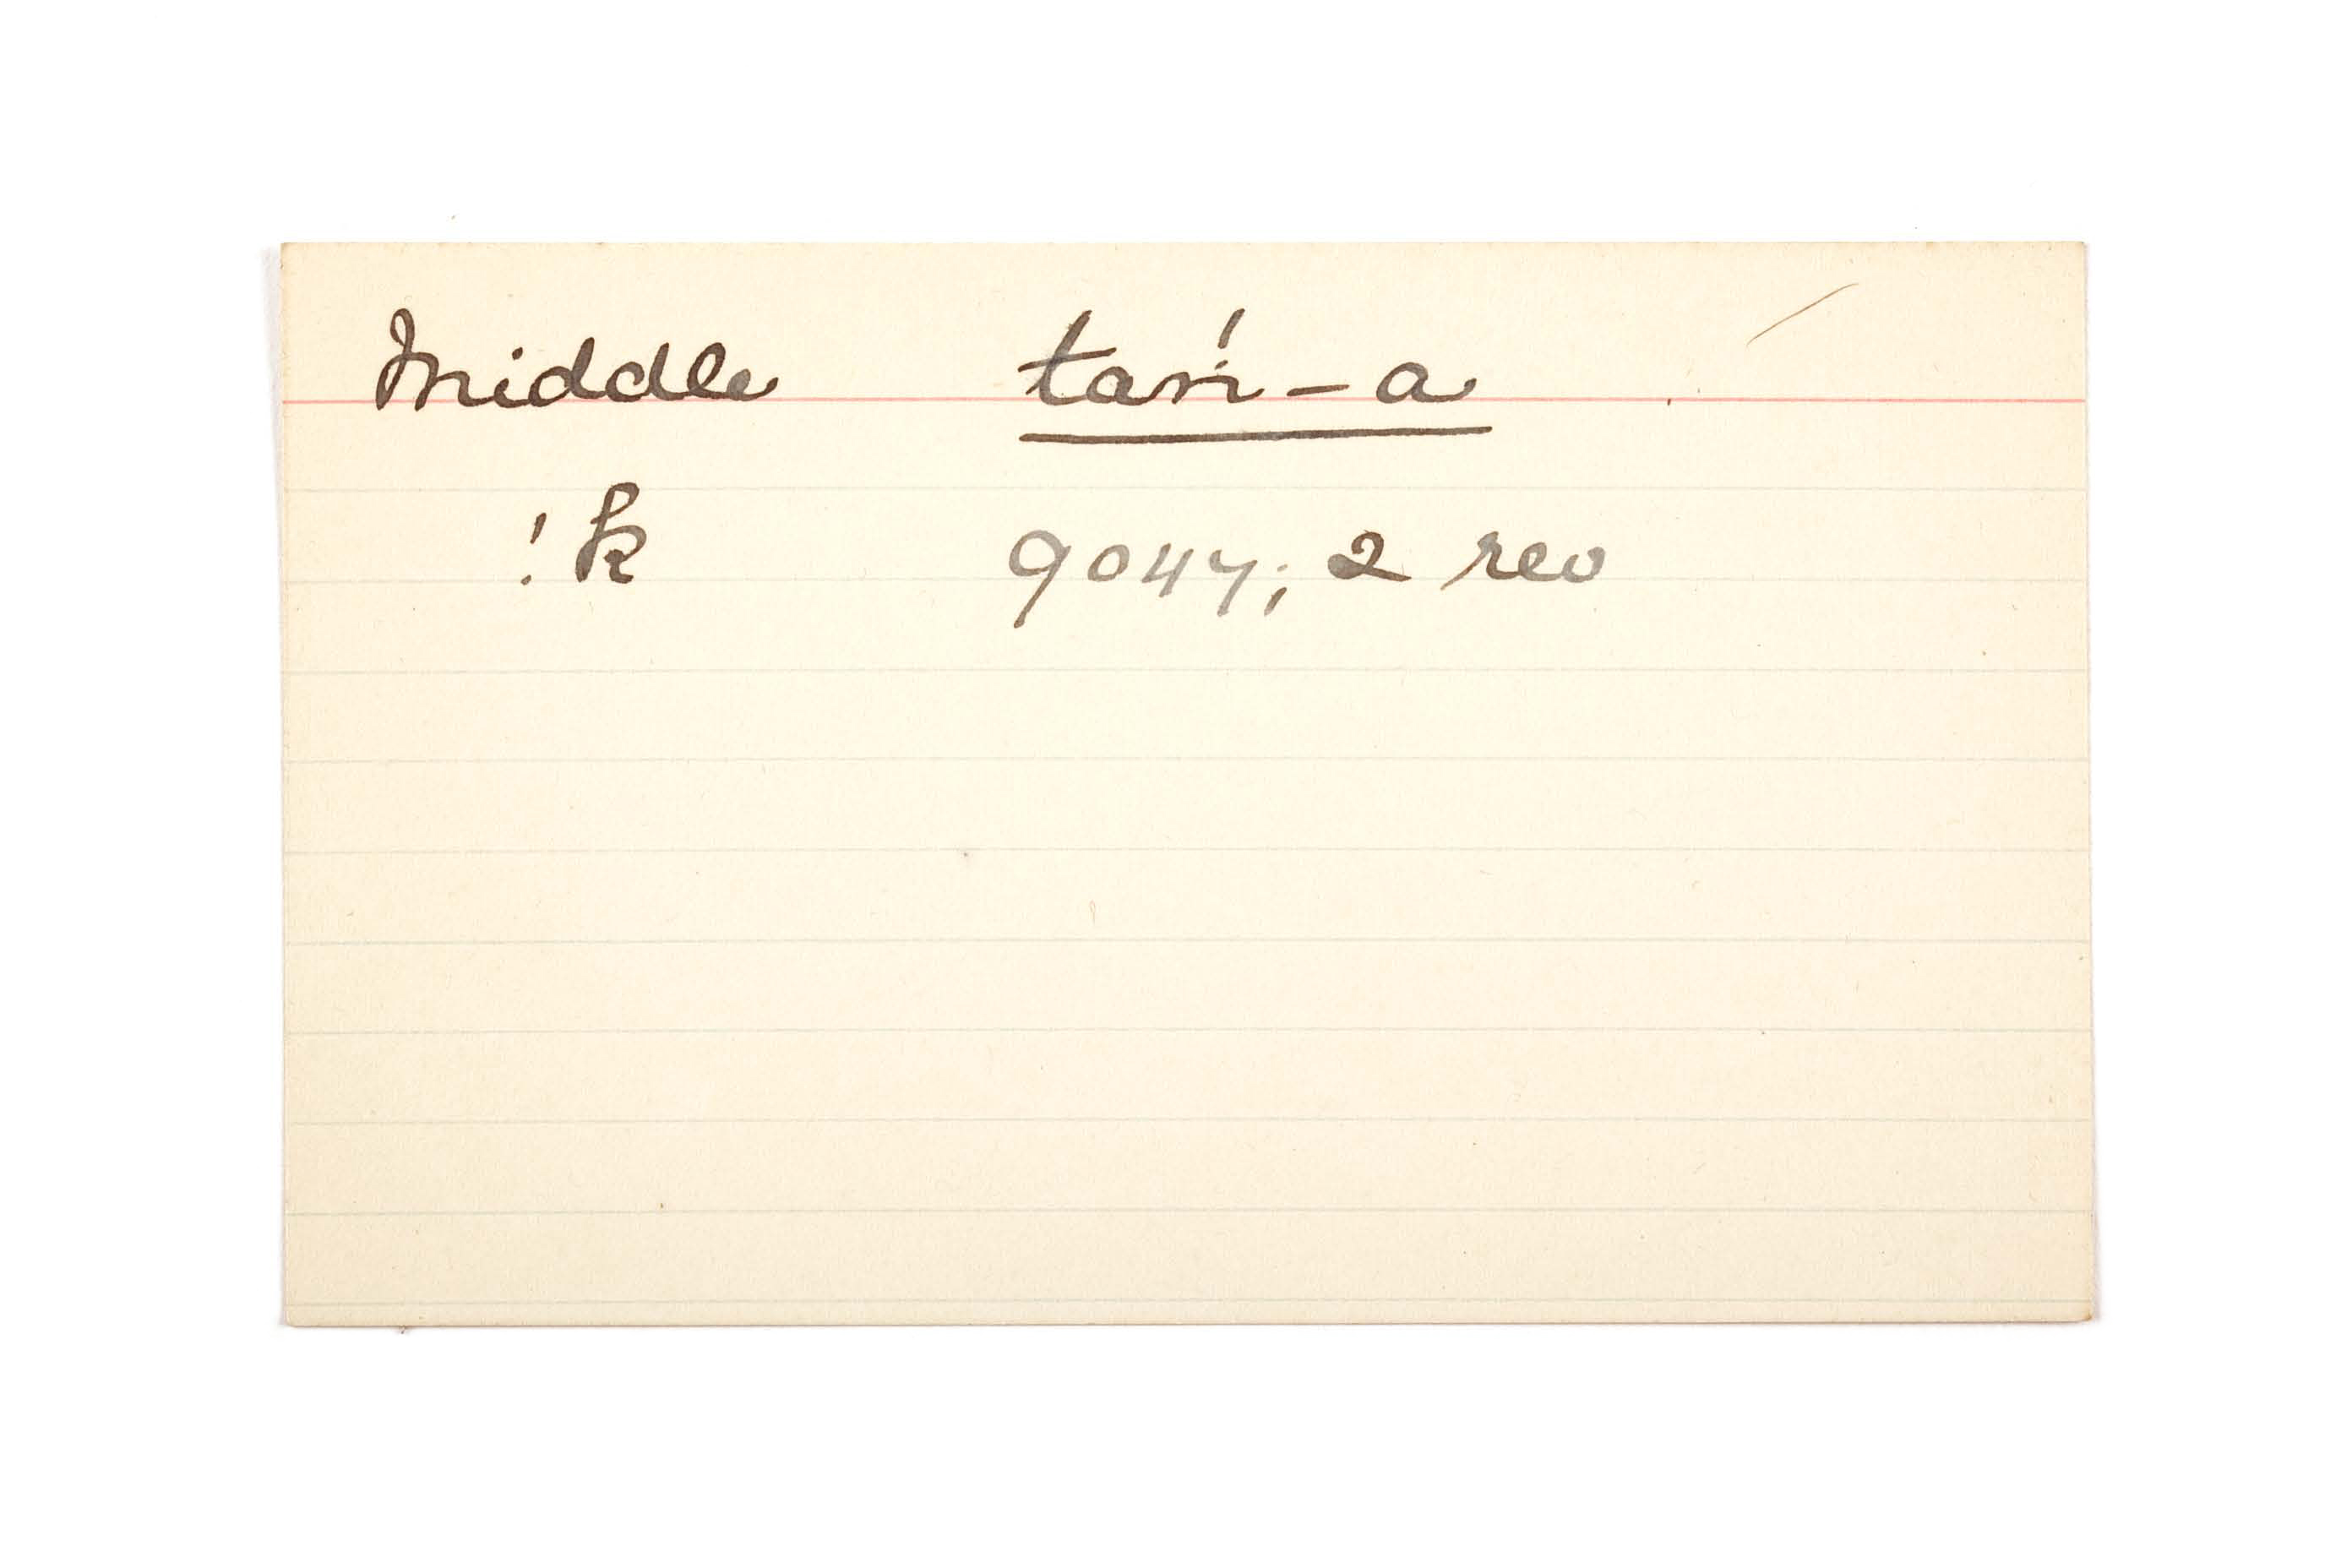 Middle tari-a
!k 9047; 2 rev